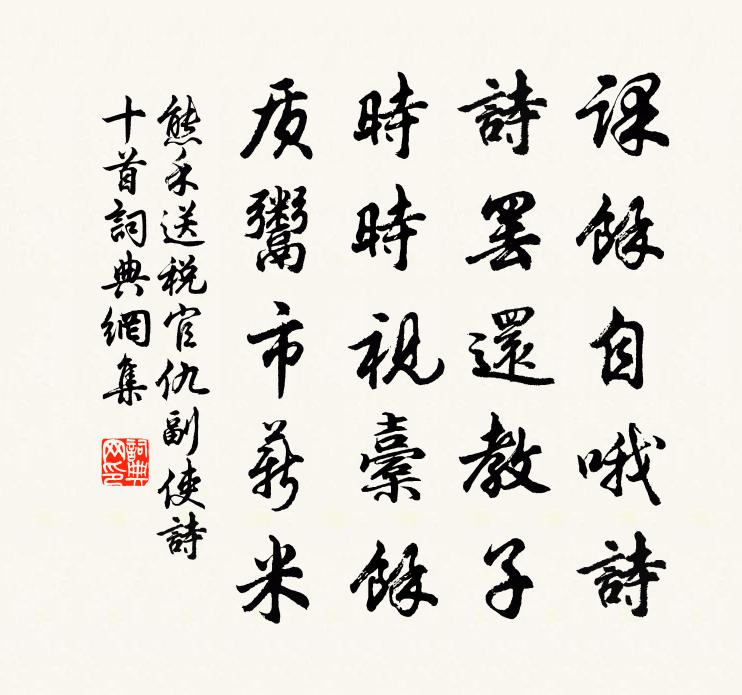 課餘自哦詩
詩罢還教子
時時視橐餘
质鬻市薪米
熊禾送税官仇副使詩
十首詞典網集
詞典网印